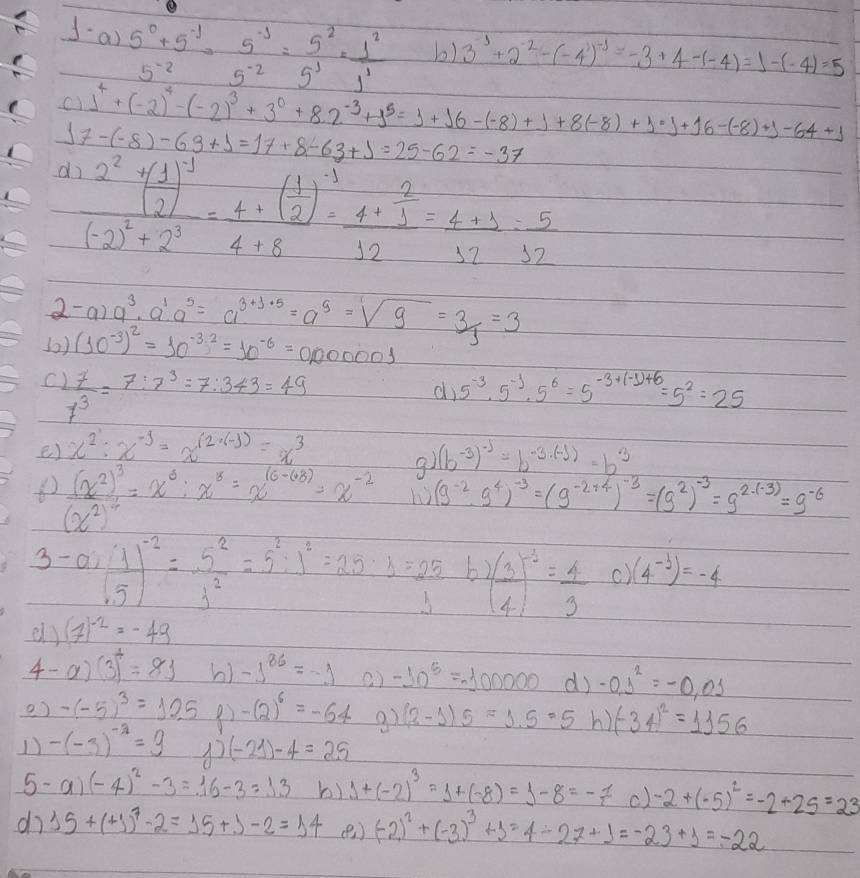 1-a) 5⁰+5⁻¹/5⁻² = 5⁻¹/5⁻² = 5²/5¹ = 1²/1¹ b) 3⁻¹+2⁻²-(-4)⁻¹ = -3+4-(-4) = 1-(-4) = 5
c) 1⁴+(-2)⁴-(-2)³+3⁰+8.2⁻³+1⁵ = 1+16-(-8)+1+8(-8)+1 = 1+16-(-8)+1-64+1
17-(-8)-63+1 = 17+8-63+1 = 25-62 = -37
d) 2²+(1/2)⁻¹/(-2)²+2³ = 4+(1/2)⁻¹/4+8 = 4+2/1/12 = 4+1/12 = 5/12
2-a) a³.a¹a⁵ = a³⁺¹⁺⁵ = a⁹ = √9 = 3/1 = 3
b) (10⁻³)² = 10⁻³·² = 10⁻⁶ = 0,000001
c) 7/7³ = 7:7³ = 7:343 = 49 d) 5⁻³.5⁻¹.5⁶ = 5⁻³⁺⁽⁻¹⁾⁺⁶ = 5² = 25
e) x²:x⁻¹ = x⁽²⁻⁽⁻¹⁾⁾ = x³ g) (b⁻³)⁻¹ = b⁻³·⁽⁻¹⁾ = b³
f) (x²)³/(x²)⁴ = x⁶:x⁸ = x⁽⁶⁻⁽⁺⁸⁾ = x⁻² h) (9⁻².9⁴)⁻³ = (9⁻²⁺⁴)⁻³ = (9²)⁻³ = 9²·⁽⁻³⁾ = 9⁻⁶
3-a) (1/5)⁻² = 5²/1² = 5²:1² = 25:1 = 25/1 b) (3/4)⁻¹ = 4/3 c) (4⁻¹) = -4
d) (7)⁻² = -49
4-a) (3)⁴ = 81 b) -1⁸⁶ = -1 c) -10⁵ = -100000 d) -0,1² = -0,01
e) -(-5)³ = 125 f) -(2)⁶ = -64 g) (2-1)5 = 1.5 = 5 h) (-34)² = 1156
i) -(-3)⁻² = 9 j) (-21)-4 = 25
5-a) (-4)²-3 = 16-3 = 13 b) 1+(-2)³ = 1+(-8) = 1-8 = -7 c) -2+(-5)² = -2+25 = 23
d) 15+(+1)⁷-2 = 15+1-2 = 14 e) (-2)²+(-3)³+1 = 4-27+1 = -23+1 = -22